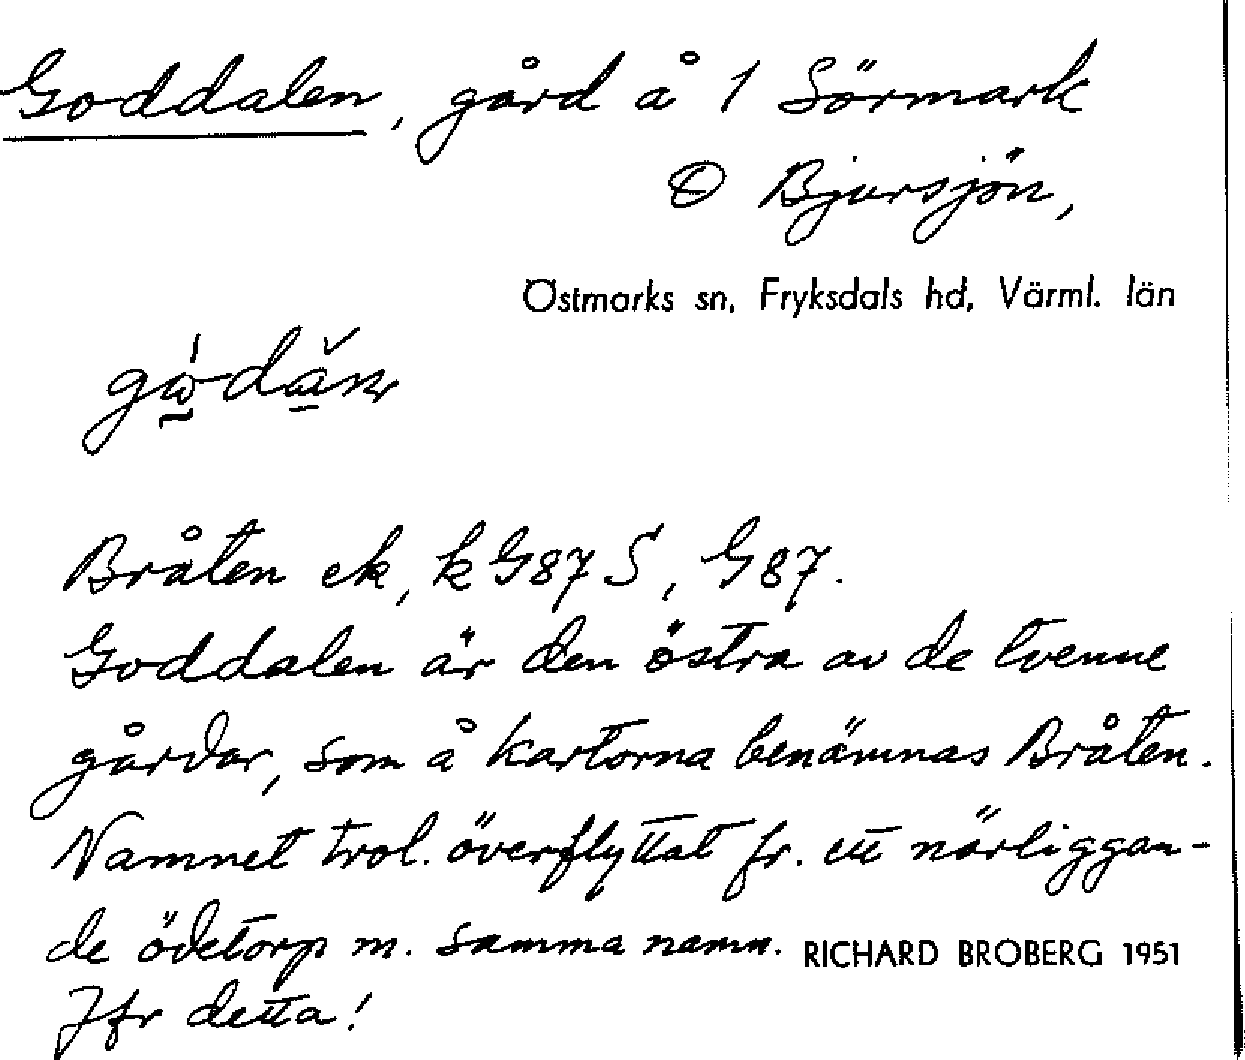 Goddalen, gård å 1 Sörmark
O Bjursjön,
Östmarks sn, Fryksdals hd, Värml. län
Bråten ek, k G87 S, G87.
Goddalen är den östra av de tvenne
gårdar, som å kartorna benämnas Bråten.
Namnet trol. överflyttat fr. ett närliggan-
de ödetorp m. samma namn. RICHARD BROBERG 1951
Jfr detta!